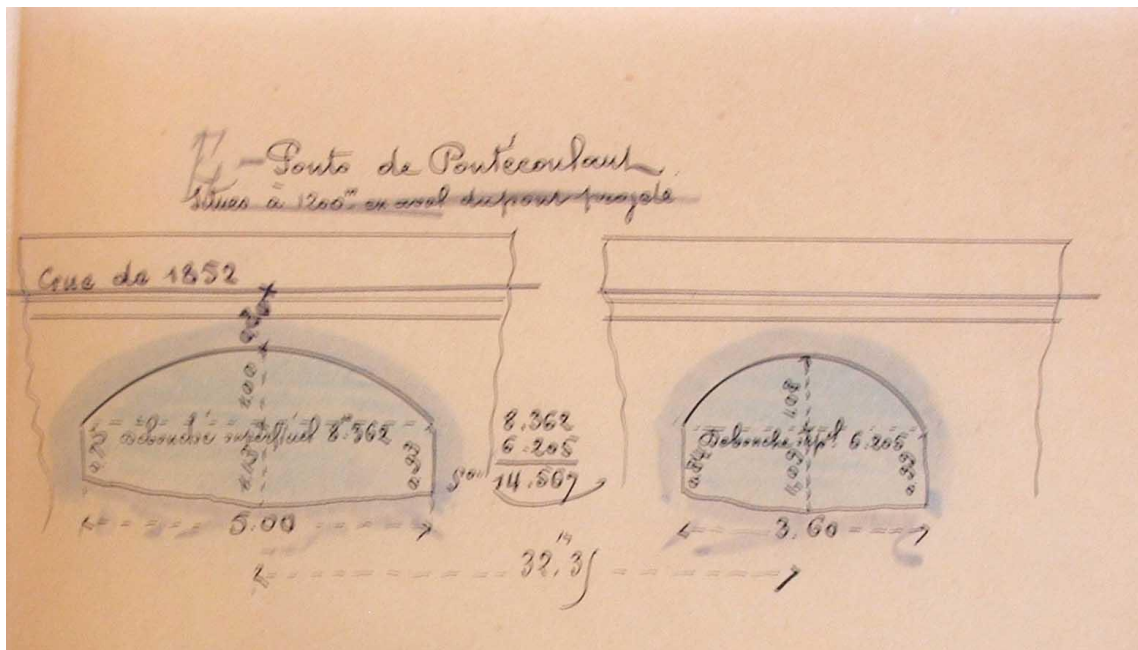 E - Ponts de Pontécoulant
situés à 1200m en aval du pont projeté
Crue de 1852
1.00
Débouché superficiel 8m.362
5.00
8.362
6.205
14.567
Débouché supl. 6.205
3.60
32m.35